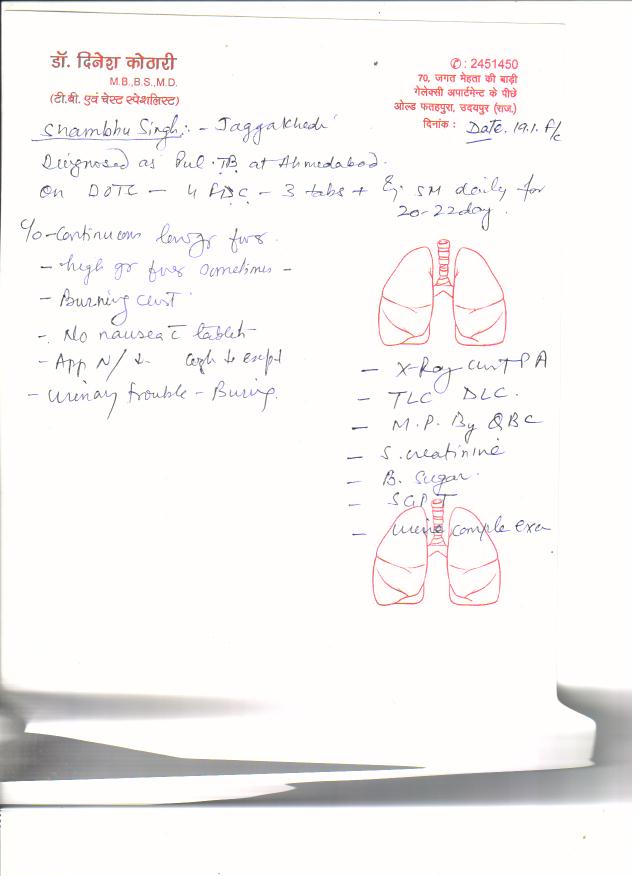 डॉ. दिनेश कोठारी
M.B.,B.S.,M.D.
(टी.बी. एवं चेस्ट स्पेशलिस्ट)
✆ : 2451450
70, जगत मेहता की बाड़ी
गेलेक्सी अपार्टमेन्ट के पीछे
ओल्ड फतहपुरा, उदयपुर (राज.)
दिनांक : Date. 19.1.
Shambhu Singh :- Jaggakhedi
Diagnosed as Pul. TB at Ahmedabad.
On DOTC - 4 FDC - 3 tabs + SM daily for
20-22 day.
C/o - Continuous low gr fever.
- high gr fever sometimes -
- Burning chest
- No nausea c̄ tablet
- App N/↓
- Urinary trouble - Buring.
- X-Ray chest PA
- TLC DLC.
- M.P. By QBC
- S. creatinine
- B. Sugar.
- SGPT
- urine comple exa